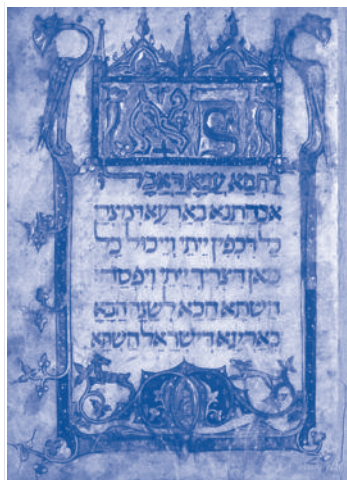 לחמא עניא דאכלו
אבהתנא בארעא דמצרי
כל דכפין ייתי וייכול כל
מאן דצריך ייתי ויפסח
השתא הכא לשנה הבא
בארעא דישראל השתא